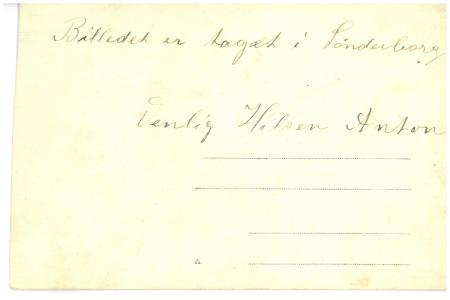 Billedet er taget i Sönderborg
Venlig Hilsen Anton